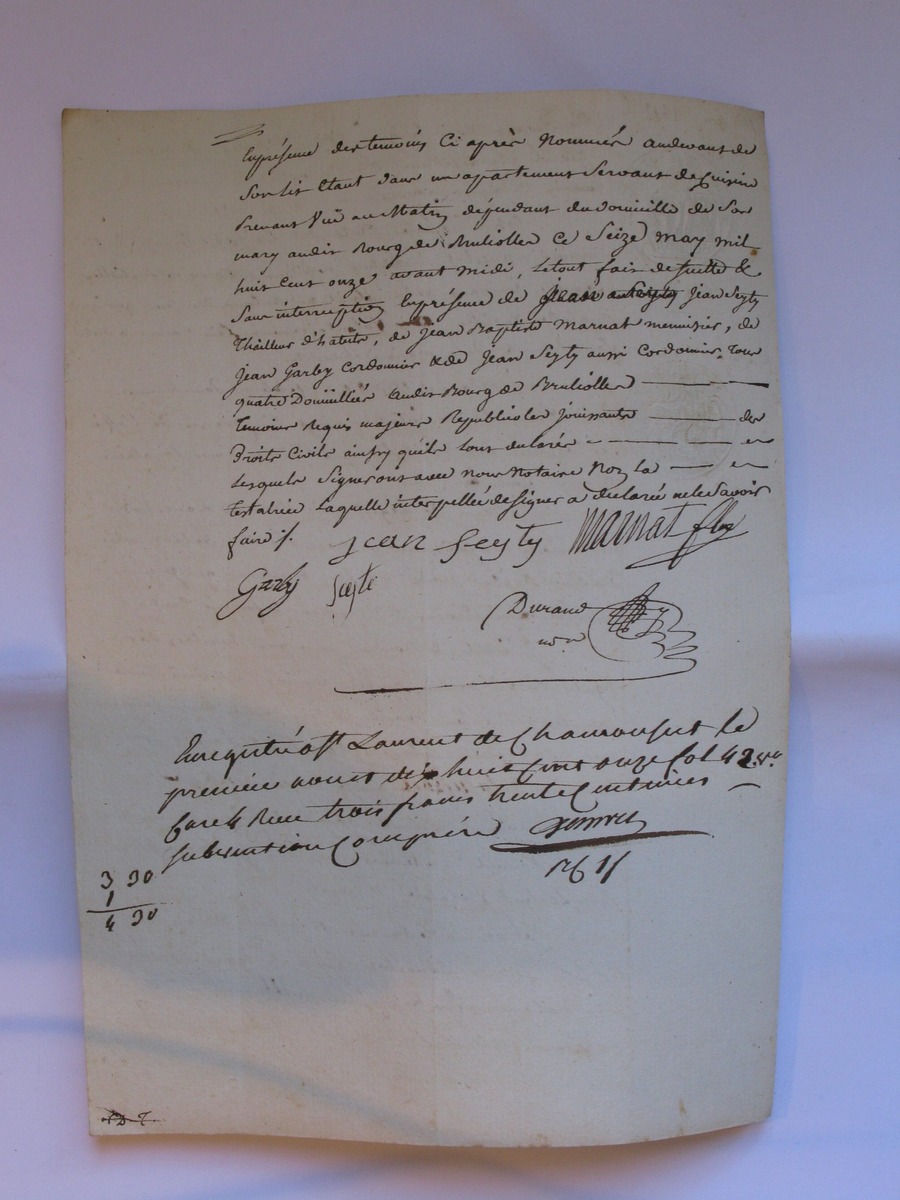 Enprésence des temoins Ci après Nommés audevant de
Son lit Etant dans un apartement Servant de Cuisine
Prenant Vüe au Matin dépendant du domicille de Son
mary audit Bourg de Bruliolles Ce Seize may mil
huit Cent onze avant midi, Letout fait de Suitte &
Sans interruption Enprésence de Jean Seyty
Thailleur d'habits, de Jean Baptiste Marnat menuisier, de
Jean Garby Cordonnier & de Jean Seyty aussi Cordonnier, Tous
quatre Domicilliés Audit Bourg de Brulliolles
temoins Requis majeurs Republicoles Jouissants des
Droits Civils ainsy quils Lont declaré et
Lesquels Signeront avec Nous Notaire Non La
testatrice Laquelle interpellée designer a declarée nele Savoir
faire ./.
jean seyty Marnat
Garby Seyte
Durand
no.re
Enregistré a St Laurent de Chamousset le
premier aoust dix huit Cent onze fol 42 v.o
Case 4 Reçu trois francs trente Centimes
subvention Comprise
3 30
1
4 30